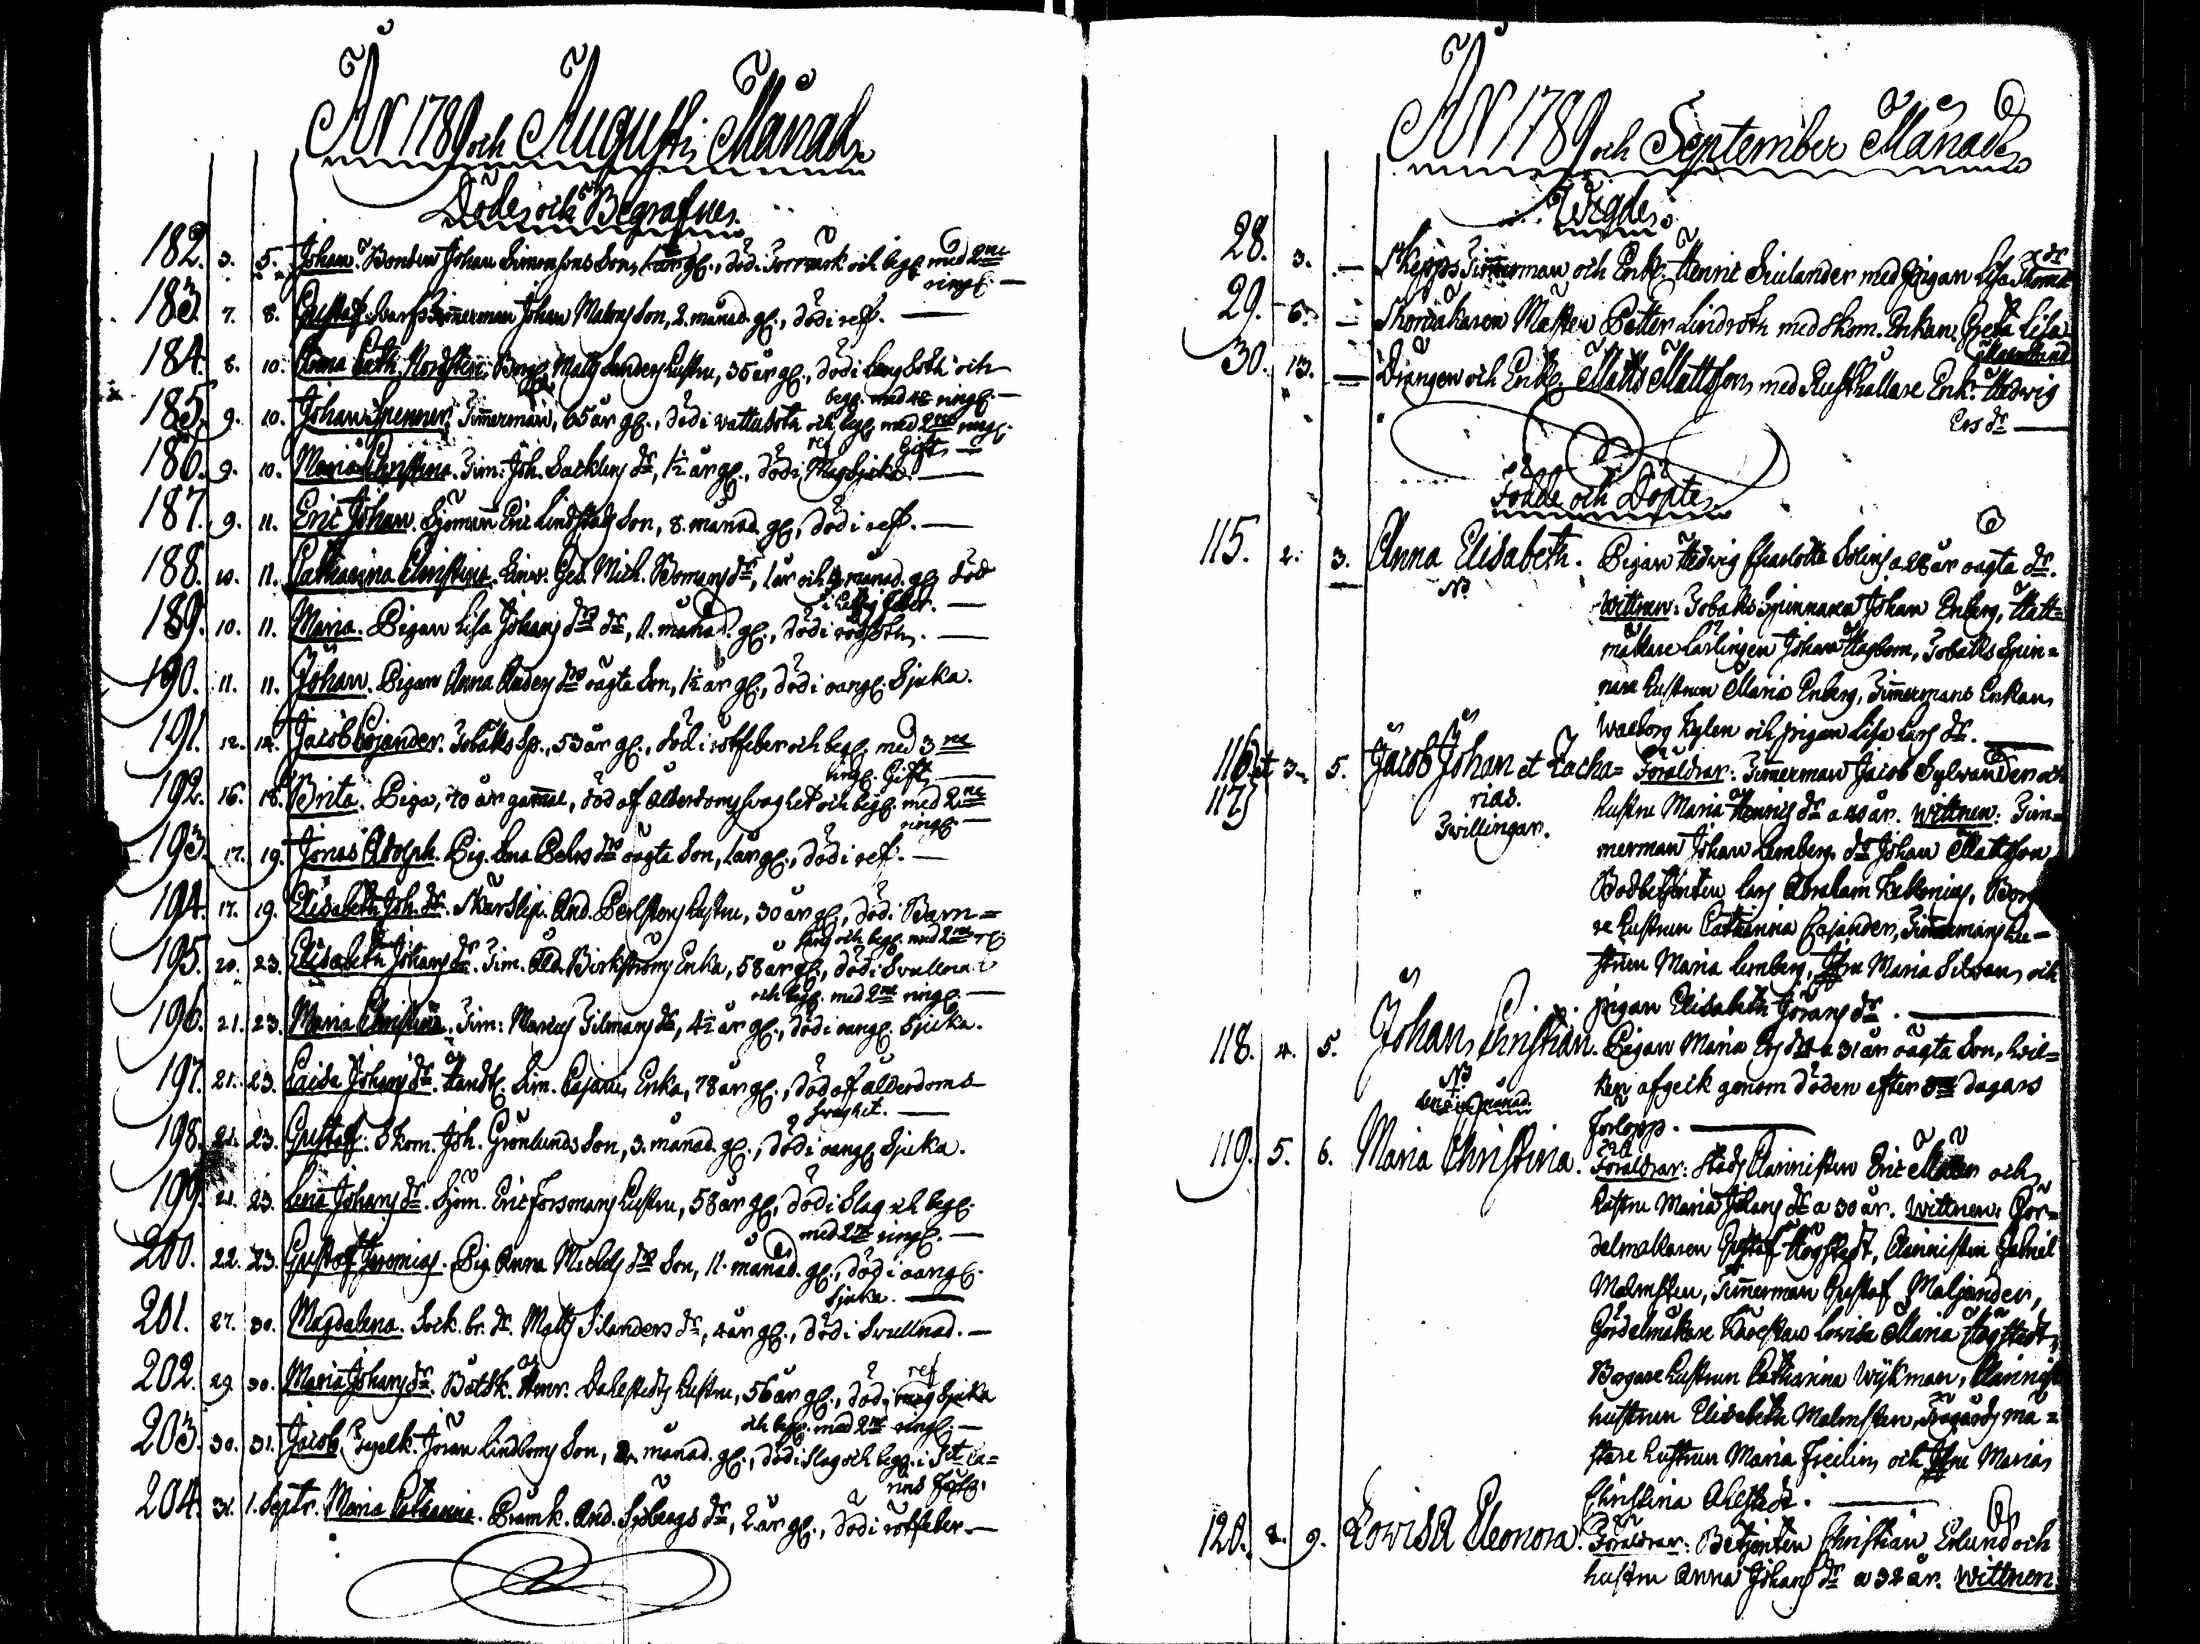 År 1789 och Augusti Månad
Döde och Begrafne
182. 3. 5. Johan. Bonden Johan Simonsons Son, 1 år gl., död i Torrwärk och begr. med 2ne
ringr. —
183. 7. 8. Gustaf. Zimmerman Johan Malms Son, 2. månad. gl., död i ref. —
184. 8. 10. Anna Cath. Nordsten. Borg. Matts Sanders Hustru, 35 år gl., död i och
begr. med ringr. —
185. 9. 10. Johan Spennert. Zimmerman, 65 år gl., död i wattusoth och begr. med 2ne ringr.
Gift. —
186. 9. 10. Maria Christina. Zim: Joh. Sacklins dr, 1½ år gl., död i ref
Magsjuka. —
187. 9. 11. Eric Johan. Sjöman Eric Lindstads Son, 8. månad. gl., död i ref. —
188. 10. 11. Catharina Christina. Ged. Mich. Bomans dr, 1 år och månad. gl., död
i hettsig feber. —
189. 10. 11. Maria. Pigan Lisa Johans drs dr, månad. gl., död i rödsoth. —
190. 11. 11. Johan. Pigan Anna Anders drs oägta Son, 1½ år gl., död i oangl. Sjuka.
191. 12. 14. Jacob Cojander. Tobaks Sp., 53 år gl., död i rötfeber och begr. med 3ne
ringr. Gift. —
192. 16. 18. Brita. Piga, 70 år gammal, död af ålderdoms svaghet och begr. med 2ne
ringr. —
193. 17. 19. Jonas Adolph. Pig. Lena Pehrs drs oägta Son, 1 år gl., död i ref. —
194. 17. 19. Elisabeth Joh. dr. And. Perlstens Hustru, 30 år gl., död i Barn=
säng och begr. med 2ne r.
195. 20. 23. Elisabeth Johans dr. Tim. Ald. Birkströms Enka, 58 år gl., död i Svullnad
och begr. med 2ne ringr. —
196. 21. 23. Maria Christina. Zim: Marcus Tilmans dr, 4½ år gl., död i oangl. Sjuka.
197. 21. 23. Caisa Johans dr. Handl. Sim. Cajani Enka, 78 år gl., död af ålderdoms
svaghet. —
198. 21. 23. Gustaf. Skom. Joh. Grönlunds Son, 3. månad. gl., död i oangl. Sjuka.
199. 21. 23. Lena Johans dr. Sjöm. Eric Forsmans Hustru, 58 år gl., död i Slag och begr.
med 2ne ringr. —
200. 22. 23. Gustaf Jeremias. Pig. Anna Michels drs Son, 11. månad. gl., död i oangl.
Sjuka. —
201. 27. 30. Magdalena. Sock. br. dr. Matts Silanders dr, 4 år gl., död i Svullnad. —
202. 29. 30. Maria Johans dr. Båtsk. Henr. Dahlstedts Hustru, 56 år gl., död i ref
Sjuka
och begr. med 2ne ringr. —
203. 30. 31. Jacob. Tegelk. Jöran Lindboms Son, månad. gl., död i Slag och begr. i St. Ca=
rins förs.
204. 31. 1. Septr. Maria Catharina. And. Sjöbergs dr, 2 år gl., död i rötfeber. —
År 1789 och September Månad
Wigde.
28. 3. — Skepps Timmerman och Enkl. Henric Siulander med Pigan Lisa Thoma
dr
29. 6. — Skomakaren Mästen Petter Lindroth med Skom. Enkan Greta Lisa
30. 13. — Drängen och Enkl. Matts Mattsson med Rusthållare Enk. Hedwig
Ers dr —
Födde och Döpte
115. 2. 3. Anna Elisabeth. Pigan Hedwig Charlotta Solins a 28 år oägta dr.
No Wittnen: Tobaks Spinnaren Johan Enberg, Hatt=
makare Lärlingen Johan Hagbom, Tobaks Spin=
nare hustrun Maria Enberg, Timmermans Enkan
Walborg Kylen och pigan Lisa Lars dr. —
116 et 117 3. 5. Jacob Johan et Zacha= Föräldrar: Timmerman Jacob Sylwander och
rias. hustru Maria Henrics dr a 40 år. Wittnen: Tim=
Twillingar. merman Johan Lemberg, do Johan Mattsson
Bodbetjenten Lars Abraham Hellenius, Borga
re hustrun Catharina Cajander, Timmermans hu=
strun Maria Lemberg, Jfru Maria Silwan, och
pigan Elisabeth Jörans dr. —
118. 4. 5. Johan Christian. Pigan Maria Ers drs a 31 år oägta Son, hwil=
No ken afgeik genom döden efter dagars
månad. förlopp. —
119. 5. 6. Maria Christina. Föräldrar: Stads Clarinisten Eric Malm och
hustru Maria Johans dr a 30 år. Wittnen: Gör=
delmakaren Gustaf Högstedt, Clarinisten Gabriel
Malmsten, Timmerman Gustaf Maljander,
Gördelmakare Käresta Lovisa Maria Högstedt,
Borgare hustrun Catharina Wijkman, Clarinist
hustrun Elisabeth Malmsten, Trägårds mä=
stare hustrun Maria Freilin, och Jfru Maria
Christina Ahlstedt. —
120. 8. 9. Lovisa Eleonora. Föräldrar: Betjenten Christian Erlund och
hustru Anna Johans dr a 32 år. Wittnen